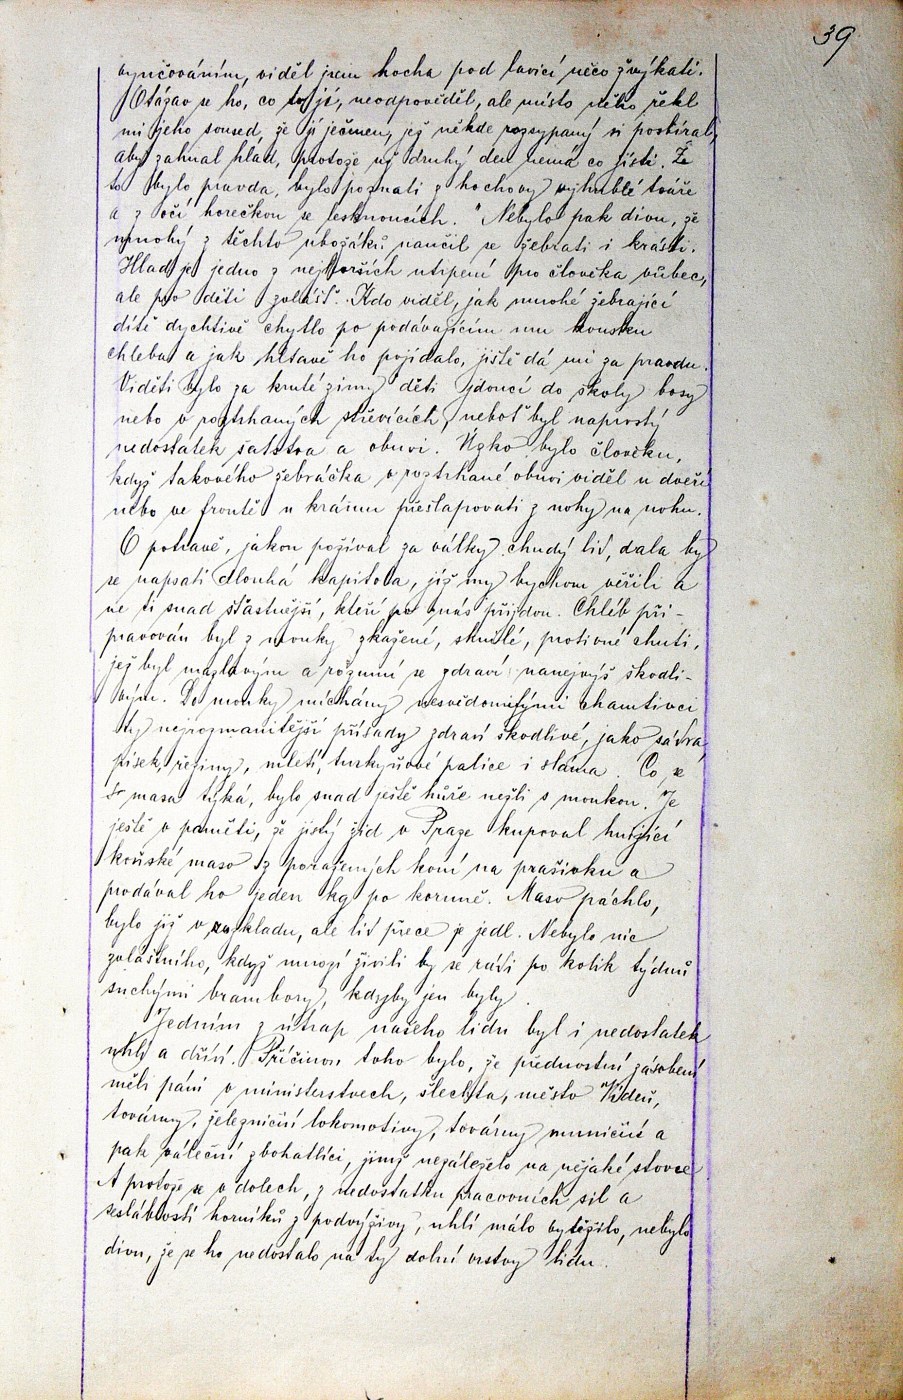 39
vyučováním, viděl jsem hocha pod lavicí něco žvýkati.
Otázav se ho, co to jí, neodpověděl, ale místo něho řekl
mi jeho soused, že jí ječmen, jež někde rozsypaný si posbíral,
aby zahnal hlad, protože už druhý den nemá co jísti. Že
to bylo pravda, bylo poznati z hochovy vyhublé tváře
a z očí horečkou se lesknoucích." Nebylo pak divu, že
mnohý z těchto ubožáků naučil se žebrati i krásti.
Hlad je jedno z nejhorších utrpení pro člověka vůbec,
ale pro děti zvlášť. Kdo viděl, jak mnohé žebrající
dítě dychtivě chytlo po podávajícím mu kousku
chleba a jak hltavě ho pojídalo, jistě dá mi za pravdu.
Viděti bylo za kruté zimy děti jdoucí do školy bosy
nebo v roztrhaných střevících, neboť byl naprostý
nedostatek šatstva a obuvi. Úzko bylo člověku,
když takového žebráčka v roztrhané obuvi viděl u dveří
nebo ve frontě u krámu přešlapovati z nohy na nohu.
O potravě, jakou požíval za války chudý lid, dala by
se napsati dlouhá kapitola, jíž my bychom věřili a
ne ti snad šťastnější, kteří po nás přijdou. Chléb při-
pravován byl z mouky zkažené, shnilé, protivné chuti,
jež byl mazlavým a rozumí se zdraví nanejvýš škodli-
vým. Do mouky míchány nesvědomitými chamtivci
ty nejrozmanitější přísady zdraví škodlivé, jako sádra,
písek, řeziny, mletí, turkyňové palice i sláma. Co se
masa týká, bylo snad ještě hůře nežli s moukou. Je
ještě v paměti, že jistý žid v Praze kupoval hnijící
koňské maso z poražených koní na prašivku a
prodával ho jeden kg po koruně. Maso páchlo,
bylo již v rozkladu, ale lid přece je jedl. Nebylo nic
zvláštního, když mnozí živili by se rádi po kolik týdnů
suchými brambory, kdyby jen byly.
Jedním z útrap našeho lidu byl i nedostatek
uhlí a dříví. Příčinou toho bylo, že přednostní zásobení
měli páni v ministerstvech, šlechta, město Vídeň,
továrny, železniční lokomotivy, továrny muniční a
pak váleční zbohatlíci, jimž nezáleželo na nějaké stovce.
A protože se v dolech, z nedostatku pracovních sil a
seslablostí horníků z podvýživy, uhlí málo vytěžilo, nebylo
divu, že se ho nedostalo na ty dolní vrstvy lidu.